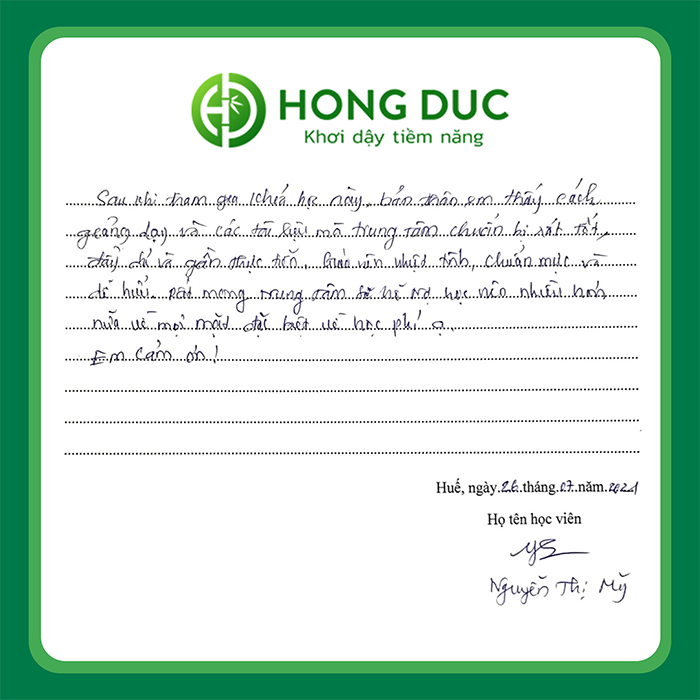 HONG DUC
Khơi dậy tiềm năng
Sau khi tham gia khoá học này, bản thân em thấy cách
giảng dạy và các tài liệu mà trung tâm chuẩn bị rất tốt,
đầy đủ và gần thực tiễn, giáo viên nhiệt tình, chuẩn mực và
dễ hiểu. Rất mong trung tâm sẽ hỗ trợ học viên nhiều hơn
nữa về mọi mặt đặc biệt về học phí ạ.
Em cảm ơn!
Huế, ngày 26 tháng 07 năm 2021
Họ tên học viên
Nguyễn Thị Mỹ